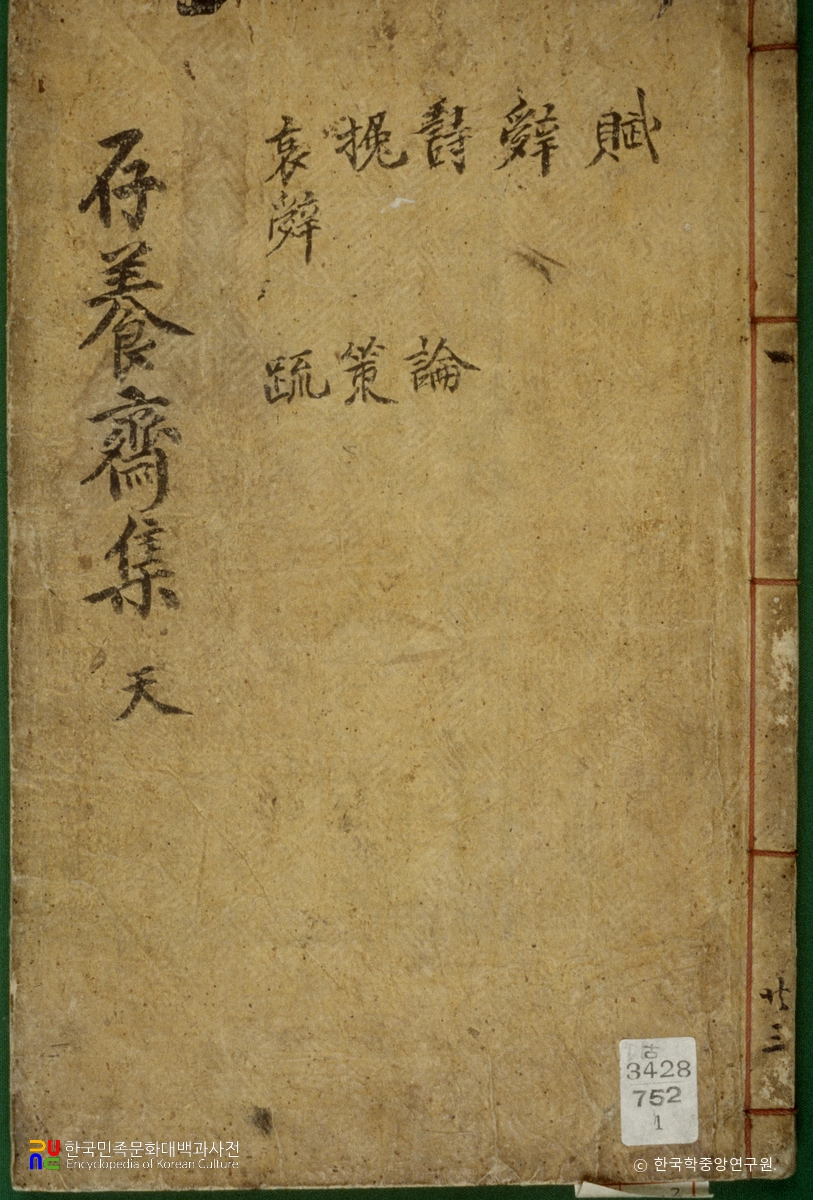 存養齋集 天
賦
辭
詩
挽
哀辭
論
策
疏
共三
古
3428
752
1
한국민족문화대백과사전
Encyclopedia of Korean Culture
© 한국학중앙연구원.